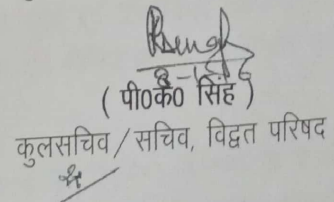 ( पी0के0 सिंह )
कुलसचिव / सचिव, विद्वत परिषद